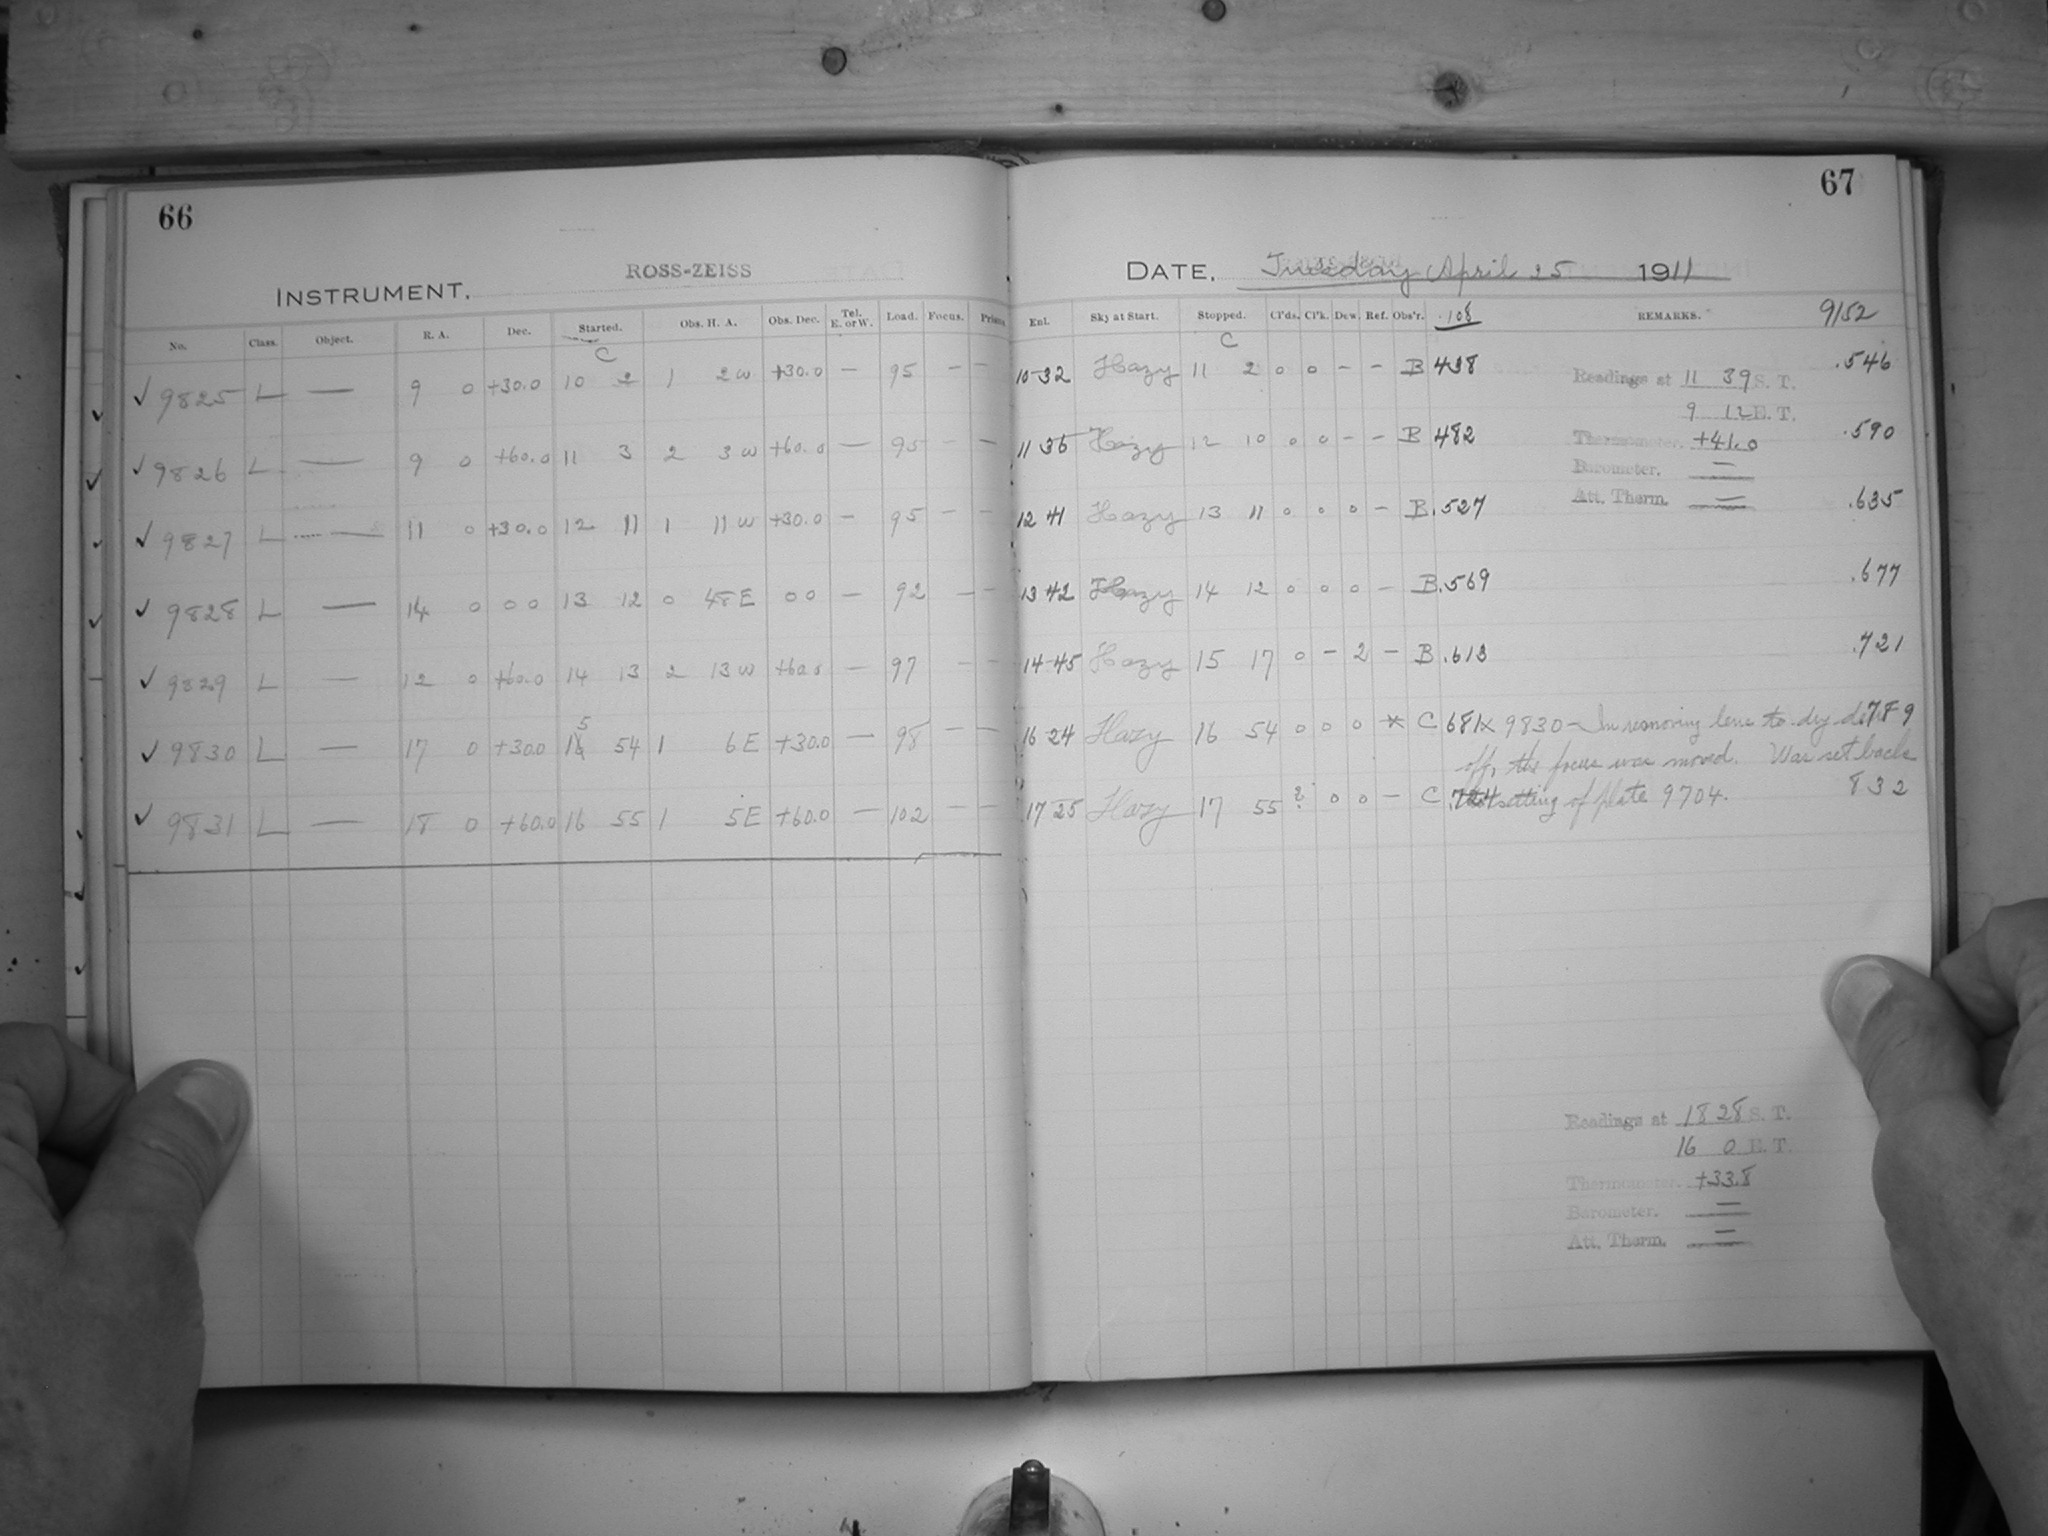 66
INSTRUMENT. ROSS-ZEISS
No. Class. Object. R. A. Dec. Started. Obs. H. A. Obs. Dec. Tel. E. or W. Load. Focus.
C
✓ 9825 L — 9 0 +30.0 10 2 1 2 W +30.0 — 95 — —
✓ 9826 L — 9 0 +60.0 11 3 2 3 W +60.0 — 95 — —
✓ 9827 L — 11 0 +30.0 12 11 1 11 W +30.0 — 95 — —
✓ 9828 L — 14 0 0 0 13 12 0 48 E 0 0 — 92 — —
✓ 9829 L — 12 0 +60.0 14 13 2 13 W +60.0 — 97 — —
✓ 9830 L — 17 0 +30.0 15 54 1 6 E +30.0 — 98 — —
✓ 9831 L — 18 0 +60.0 16 55 1 5 E +60.0 — 102 — —
67
DATE, Tuesday April 25 1911
Enl. Sky at Start. Stopped. Cl'ds. Cl'k. Dew. Ref. Obs'r. .108 REMARKS. 9152
C
10-32 Hazy 11 2 0 0 - - B 438 .546
Readings at 11 39 S. T.
9 12 E. T.
11 36 Hazy 12 10 0 0 - - B 482 .590
Thermometer. +41.0
Barometer. =
Att. Therm. =
12 41 Hazy 13 11 0 0 0 - B .527 .635
13 42 Hazy 14 12 0 0 0 - B .569 .677
14-45 Hazy 15 17 0 - 2 - B .613 .721
16-24 Hazy 16 54 0 0 0 * C 681 x 9830 — In removing lens to dry dew 789
off, the focus was moved. Was set back
17 25 Hazy 17 55 2? 0 0 - C .724 setting of plate 9704. 832
Readings at 18 28 S. T.
16 0 E. T.
Thermometer. +33.8
Barometer. =
Att. Therm. =